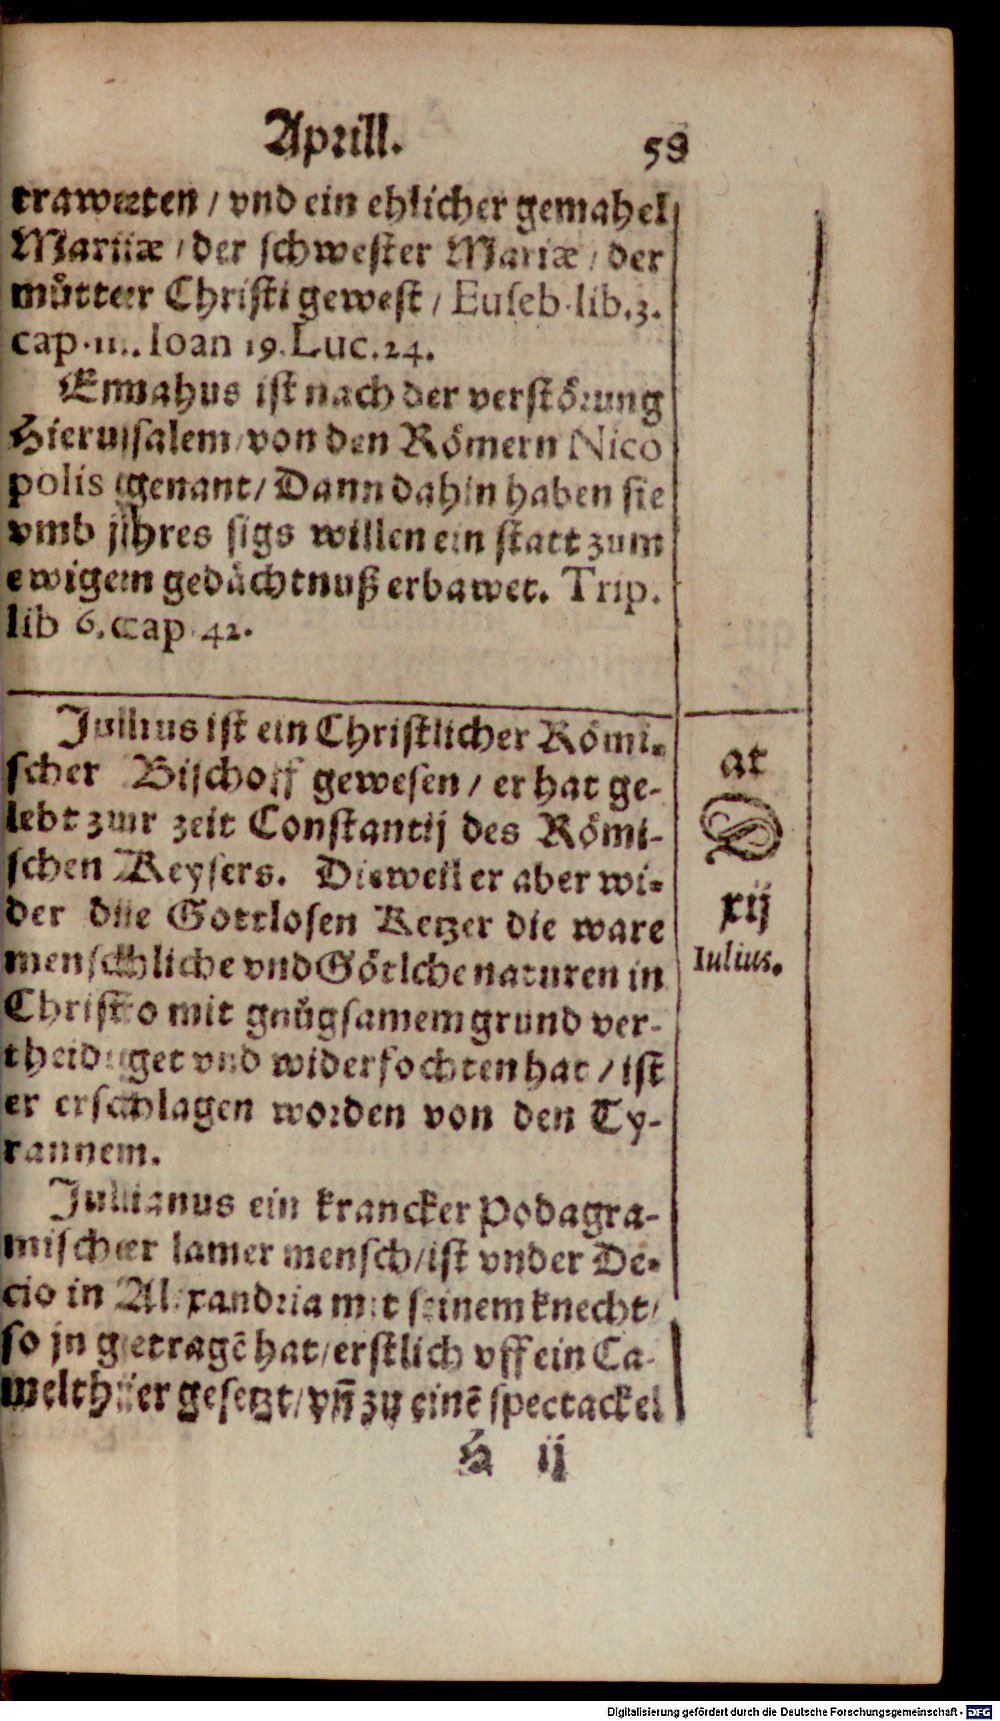 Aprill. 58
trawrten / vnd ein ehlicher gemahel
Mariæ / der schwester Mariæ / der
můtter Christi gewest / Euseb. lib. 3.
cap. 11. Ioan 19. Luc. 24.
Emahus ist nach der verstörung
Hierusalem / von den Römern Nico
polis genant / Dann dahin haben sie
vmb jhres sigs willen ein statt zum
ewigem gedächtnuß erbawet. Trip.
lib 6. cap. 42.
Julius ist ein Christlicher Römi-
scher Bischoff gewesen / er hat ge-
lebt zur zeit Constantij des Römi-
schen Keysers. Dieweil er aber wi-
der die Gottlosen Ketzer die ware
menschliche vnd Götlche naturen in
Christo mit gnůgsamem grund ver-
theidiget vnd widerfochten hat / ist
er erschlagen worden von den Ty-
rannem.
Julianus ein krancker Podagra-
mischer lamer mensch / ist vnder De-
cio in Alexandria mit seinem knecht /
so jn getragē hat / erstlich vff ein Ca-
melthier gesetzt / vn̄ zu einē spectackel
H ij
at
D
xij
Iulius.
Digitalisierung gefördert durch die Deutsche Forschungsgemeinschaft - DFG